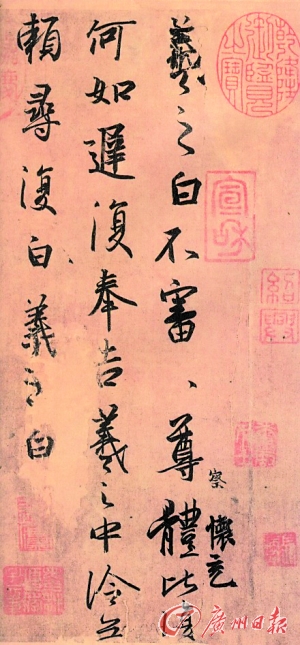 羲之白不審、尊體比復
何如遲復奉告羲之中冷無
賴尋復白羲之白
察
懷充
宣和
紹興
廣州日報